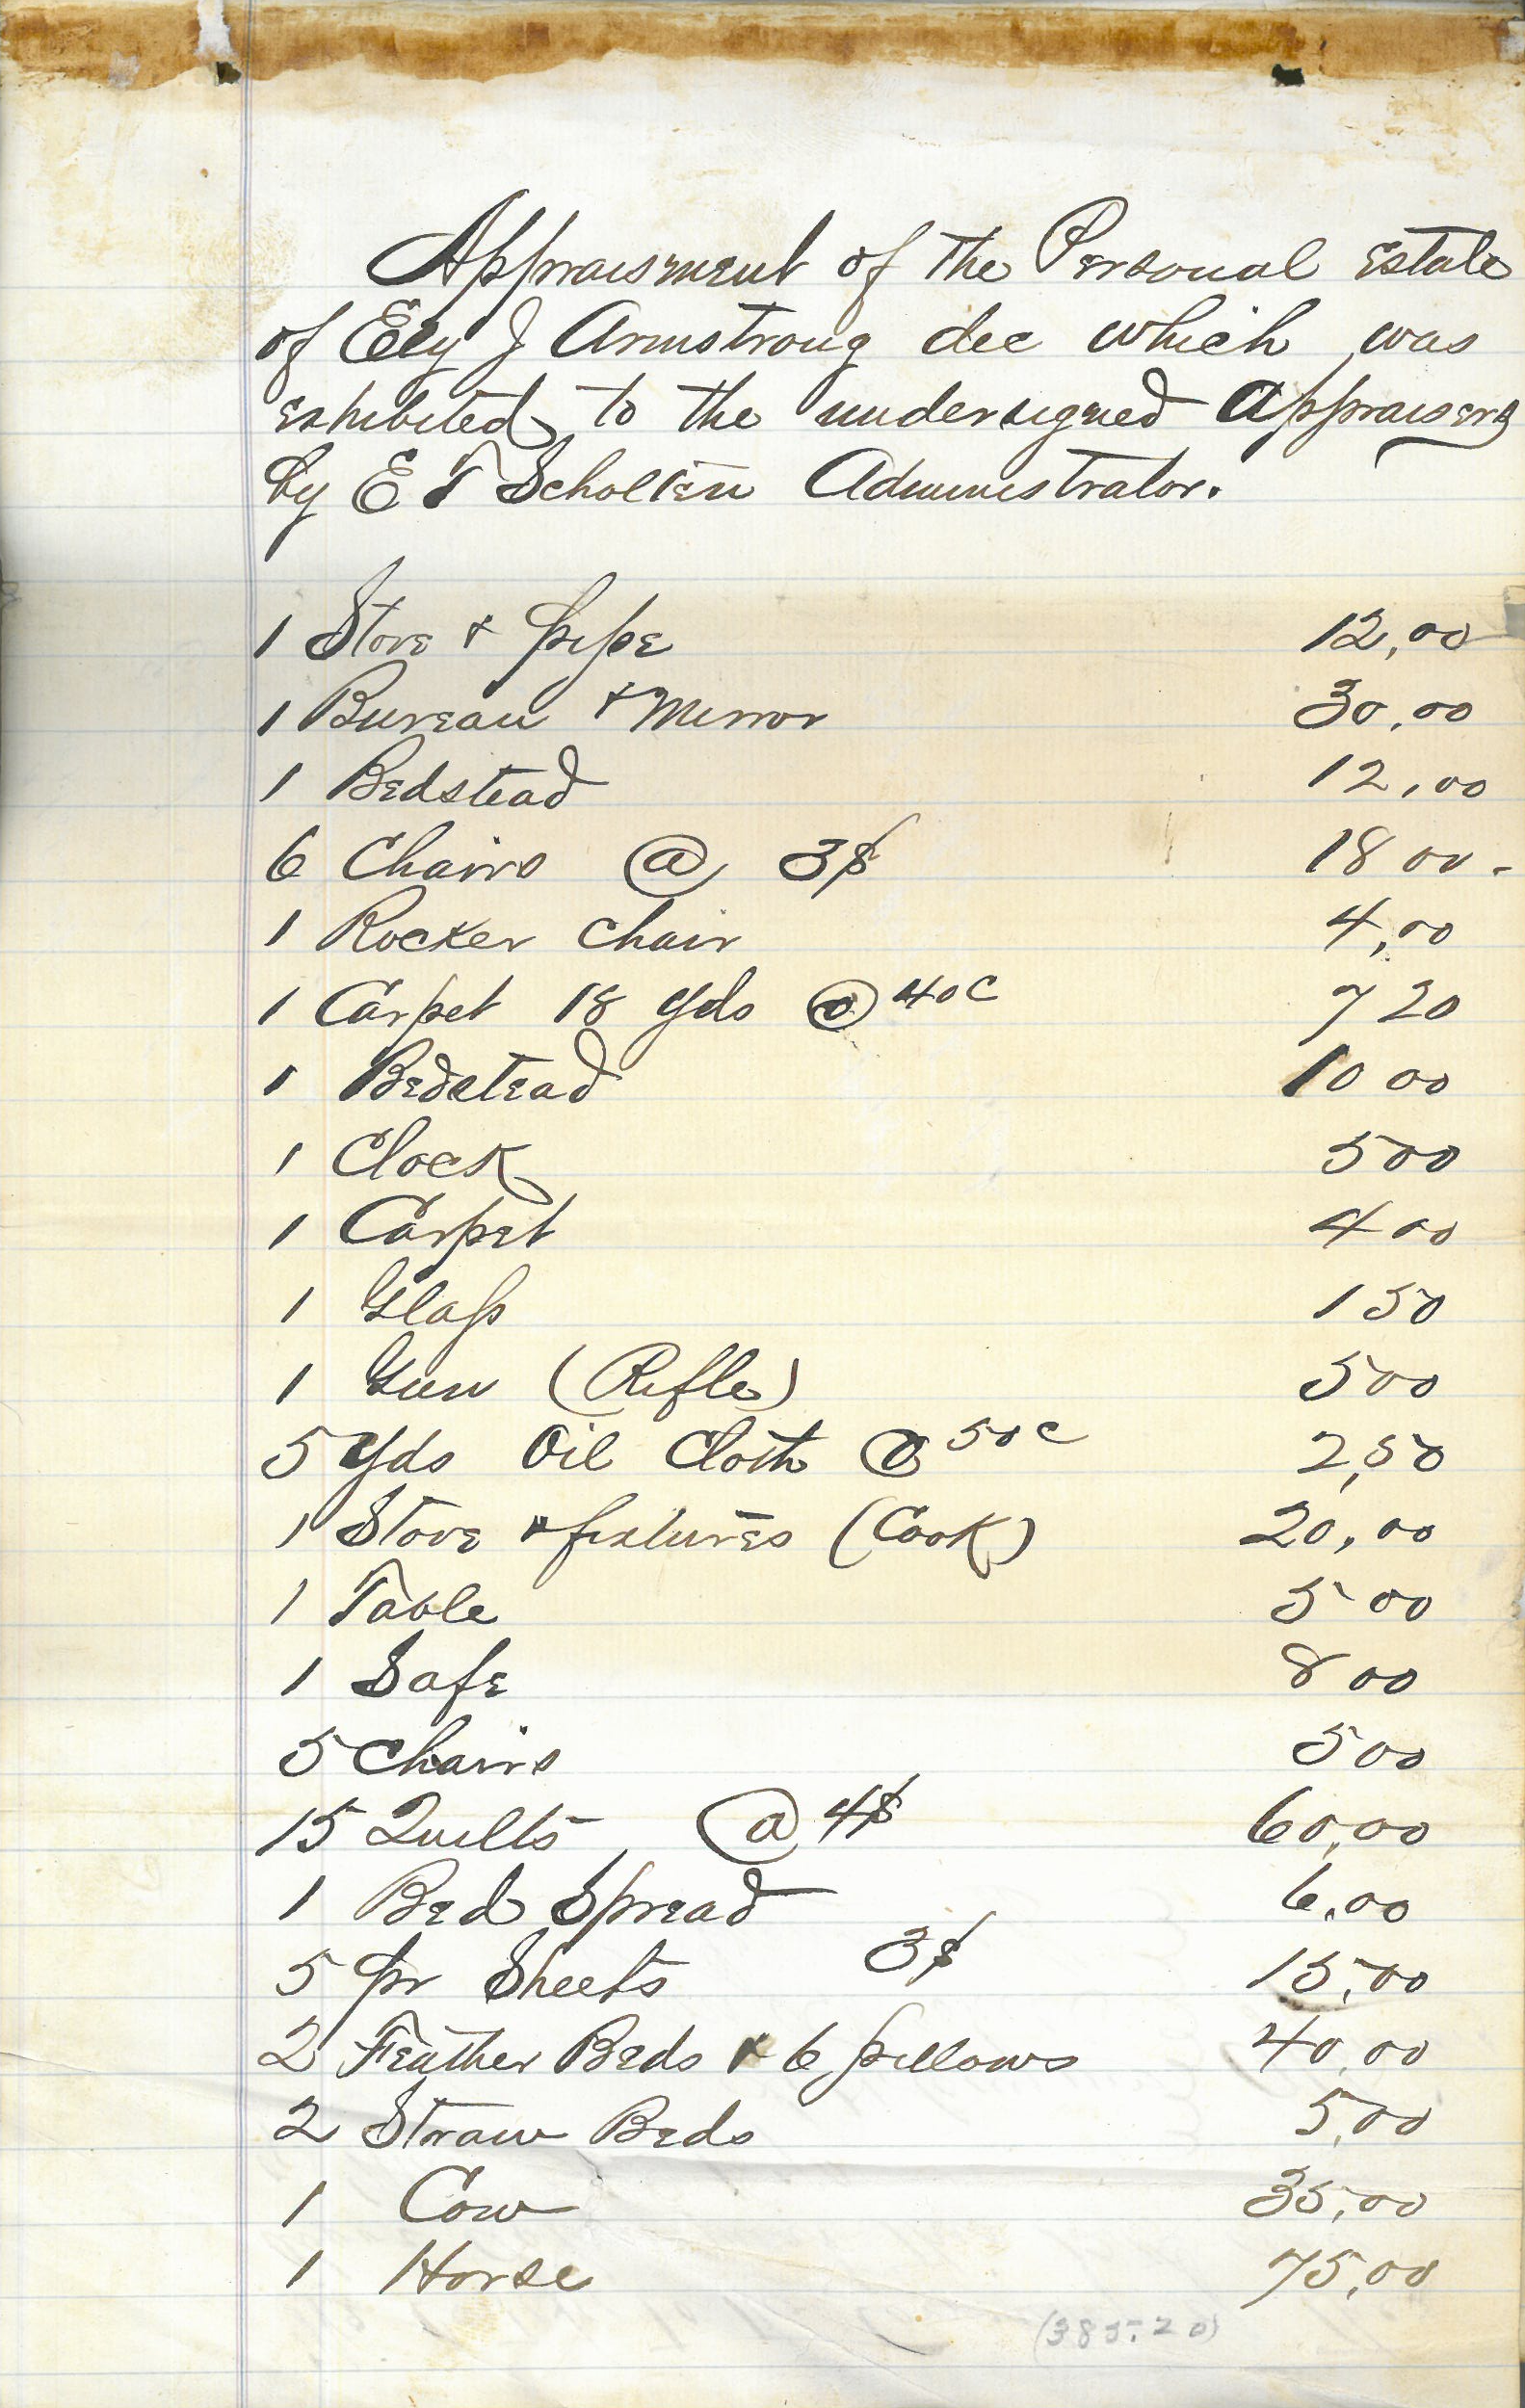 Appraisment of the Personal Estate
of Ely J Armstrong dec which was
exhibited to the undersigned Appraisers
by E T Scholten Administrator.
1 Stove & pipe 12,00
1 Bureau & Mirror 30,00
1 Bedstead 12,00
6 Chairs @ 3$ 18 00
1 Rocker Chair 4,00
1 Carpet 18 yds @ 40c 7 20
1 Bedstead 10 00
1 Clock 5 00
1 Carpet 4 00
1 Glass 1 50
1 Gun (Rifle) 5 00
5 yds Oil Cloth @ 50c 2,50
1 Stove & fixtures (Cook) 20,00
1 Table 5 00
1 Safe 8 00
5 Chairs 5 00
15 Quilts @ 4$ 60,00
1 Bed Spread 6,00
5 pr Sheets 3$ 15,00
2 Feather Beds & 6 pillows 40,00
2 Straw Beds 5,00
1 Cow 35,00
1 Horse 75,00
(385.20)